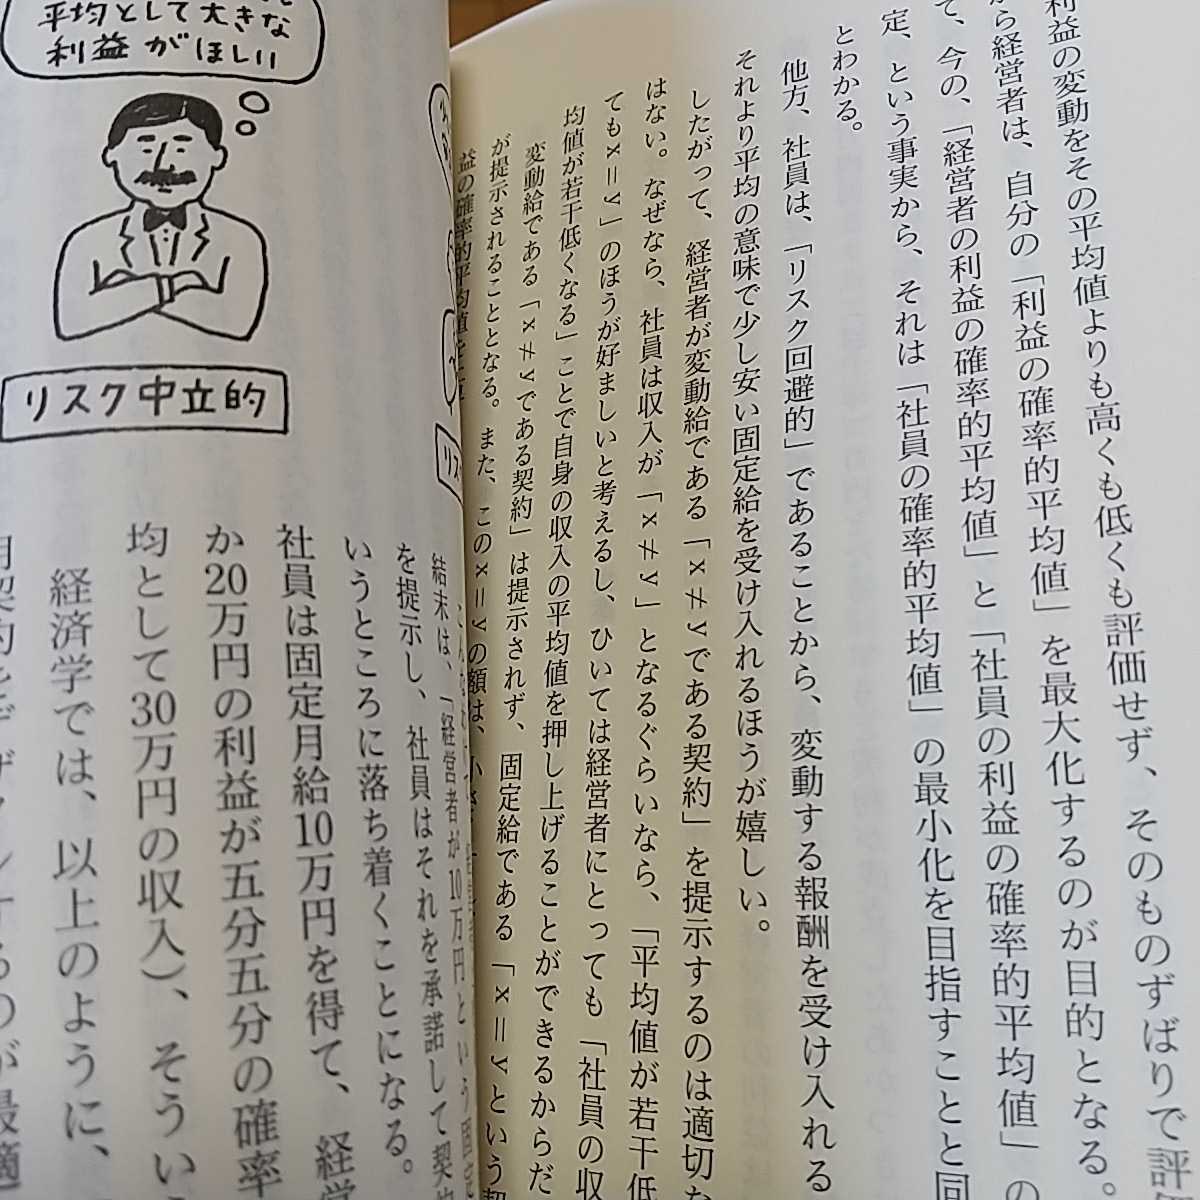 利益の変動をその平均値よりも高くも低くも評価せず、そのものずばりで評
ら経営者は、自分の「利益の確率的平均値」を最大化するのが目的となる。
て、今の、「経営者の利益の確率的平均値」と「社員の利益の確率的平均値」の
定、という事実から、それは「社員の確率的平均値」の最小化を目指すことと同
とわかる。
他方、社員は、「リスク回避的」であることから、変動する報酬を受け入れる
それより平均の意味で少し安い固定給を受け入れるほうが嬉しい。
したがって、経営者が変動給である「x≠yである契約」を提示するのは適切な
はない。なぜなら、社員は収入が「x≠y」となるぐらいなら、「平均値が若干低
てもx=y」のほうが好ましいと考えるし、ひいては経営者にとっても「社員の収
均値が若干低くなる」ことで自身の収入の平均値を押し上げることができるからだ
変動給である「x≠yである契約」は提示されず、固定給である「x=yという契
が提示されることとなる。また、このx=yの額は、
益の確率的平均値を
平均として大きな
利益がほしい
リスク中立的
リス
結末は、「経営者が10万円という固定
を提示し、社員はそれを承諾して契約
いうところに落ち着くことになる。
社員は固定月給10万円を得て、経
か20万円の利益が五分五分の確率
均として30万円の収入)、そうい
経済学では、以上のように、
用契約をデザインするのが最適